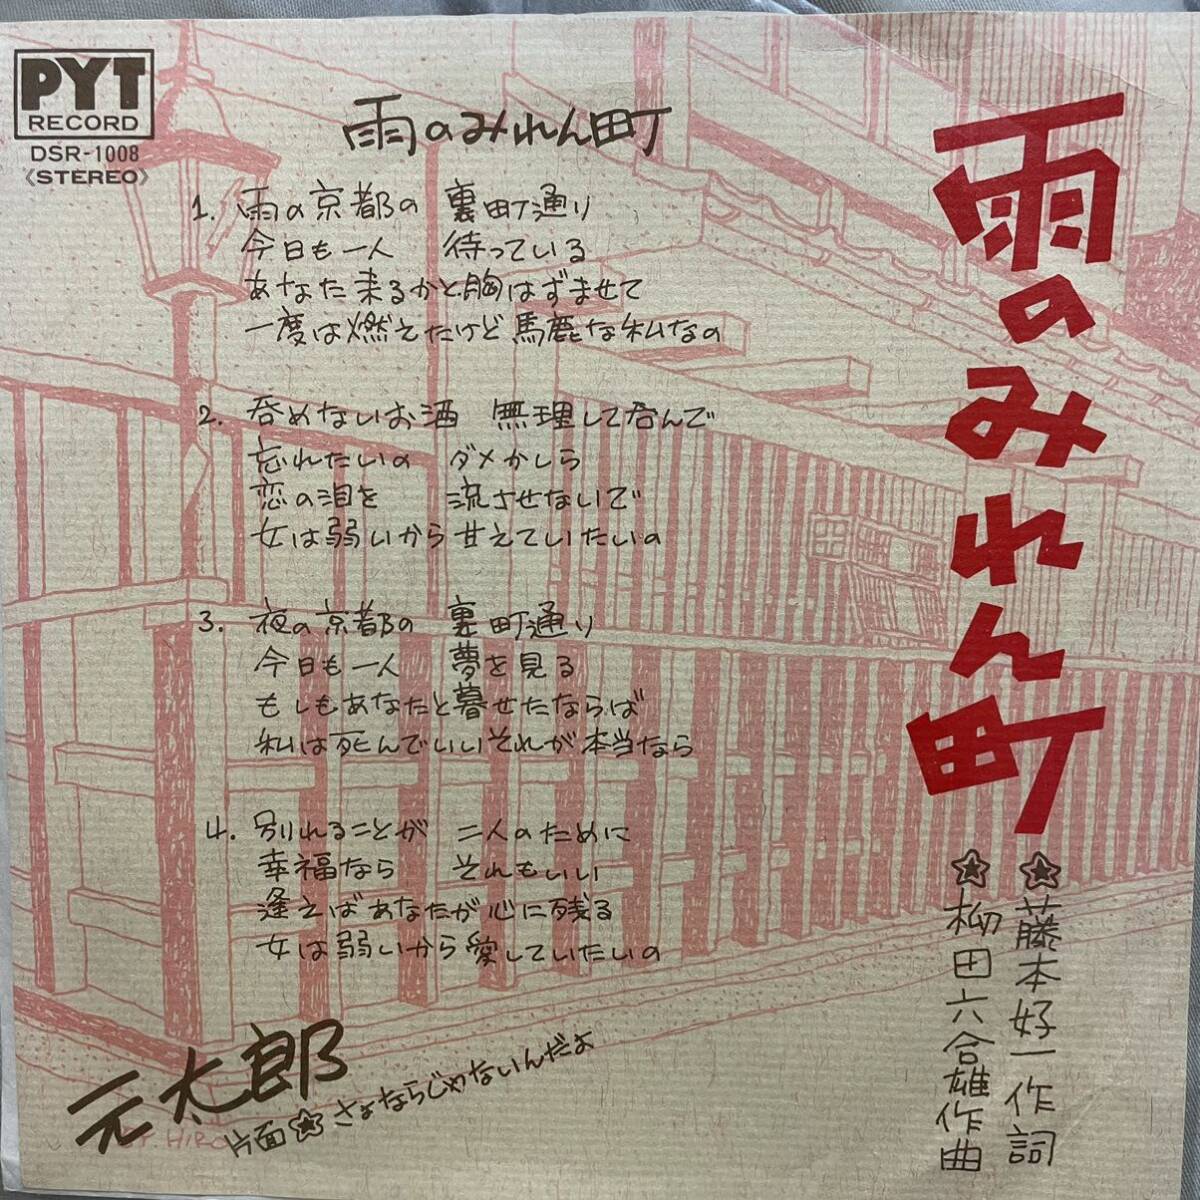 PYT
RECORD
DSR-1008
《STEREO》
雨のみれん町
雨のみれん町
1. 雨の京都の 裏町通り
今日も一人 待っている
あなた来るかと胸はずませて
一度は燃えたけど馬鹿な私なの
2. 呑めないお酒 無理して呑んで
忘れたいの ダメかしら
恋の泪を 流させないで
女は弱いから甘えていたいの
3. 夜の京都の 裏町通り
今日も一人 夢を見る
もしもあなたと暮せたならば
私は死んでいいそれが本当なら
4. 別れることが 二人のために
幸福なら それもいい
逢えばあなたが心に残る
女は弱いから愛していたいの
☆藤本好一作詞
☆柳田六合雄作曲
元太郎
片面☆さよならじゃないんだよ